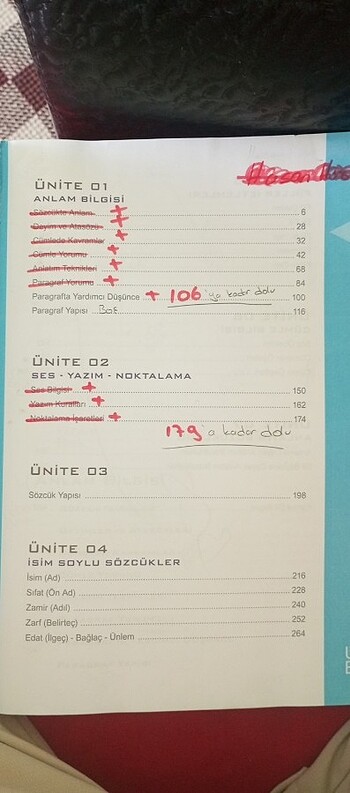 ÜNİTE 01
ANLAM BİLGİSİ
Sözcükte Anlam 6
Deyim ve Atasözü 28
Cümlede Kavramlar 32
Cümle Yorumu 42
Anlatım Teknikleri 68
Paragraf Yorumu 84
Paragrafta Yardımcı Düşünce + 106'ya kadar dolu 100
Paragraf Yapısı Boş 116
ÜNİTE 02
SES - YAZIM - NOKTALAMA
Ses Bilgisi + 150
Yazım Kuralları + 162
Noktalama İşaretleri + 174
179'a kadar dolu
ÜNİTE 03
Sözcük Yapısı 198
ÜNİTE 04
İSİM SOYLU SÖZCÜKLER
İsim (Ad) 216
Sıfat (Ön Ad) 228
Zamir (Adıl) 240
Zarf (Belirteç) 252
Edat (İlgeç) - Bağlaç - Ünlem 264